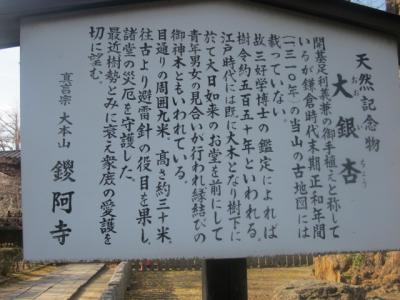 天然記念物
大銀杏
おお い ちょう
開基足利義兼の御手植えと称して
いるが鎌倉時代末期正和年間
(一三一〇年)の当山の古地図には
載っていない。
故三好学博士の鑑定によれば
樹令約五百五十年といわれる。
江戸時代には既に大木となり樹下に
於て大日如来のお堂を前にして
青年男女の見合いが行われ縁結びの
御神木ともいわれている。
目通りの周囲九米、高さ約三十米、
往古より避雷針の役目を果し、
諸堂の災厄を守護した。
最近樹勢とみに衰え衆庶の愛護を
切に望む。
真言宗 大本山 鑁阿寺